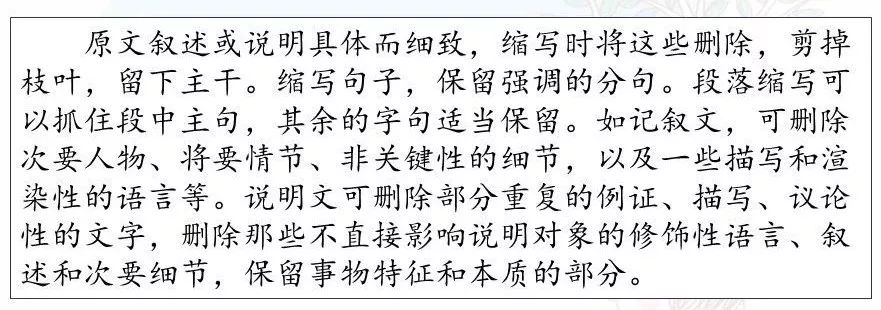 原文叙述或说明具体而细致，缩写时将这些删除，剪掉
枝叶，留下主干。缩写句子，保留强调的分句。段落缩写可
以抓住段中主句，其余的字句适当保留。如记叙文，可删除
次要人物、将要情节、非关键性的细节，以及一些描写和渲
染性的语言等。说明文可删除部分重复的例证、描写、议论
性的文字，删除那些不直接影响说明对象的修饰性语言、叙
述和次要细节，保留事物特征和本质的部分。